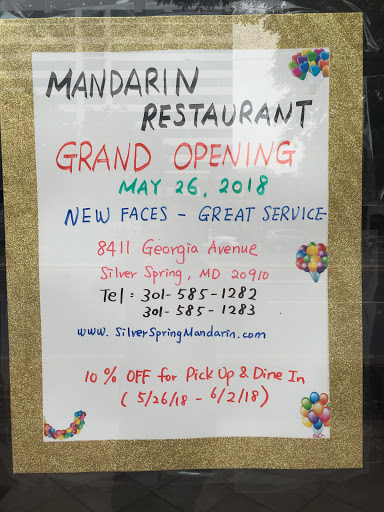 MANDARIN
RESTAURANT
GRAND OPENING
MAY 26, 2018
NEW FACES - GREAT SERVICE
8411 Georgia Avenue
Silver Spring, MD 20910
Tel: 301-585-1282
301-585-1283
www.SilverSpringMandarin.com
10% OFF for Pick Up & Dine In
( 5/26/18 - 6/2/18 )